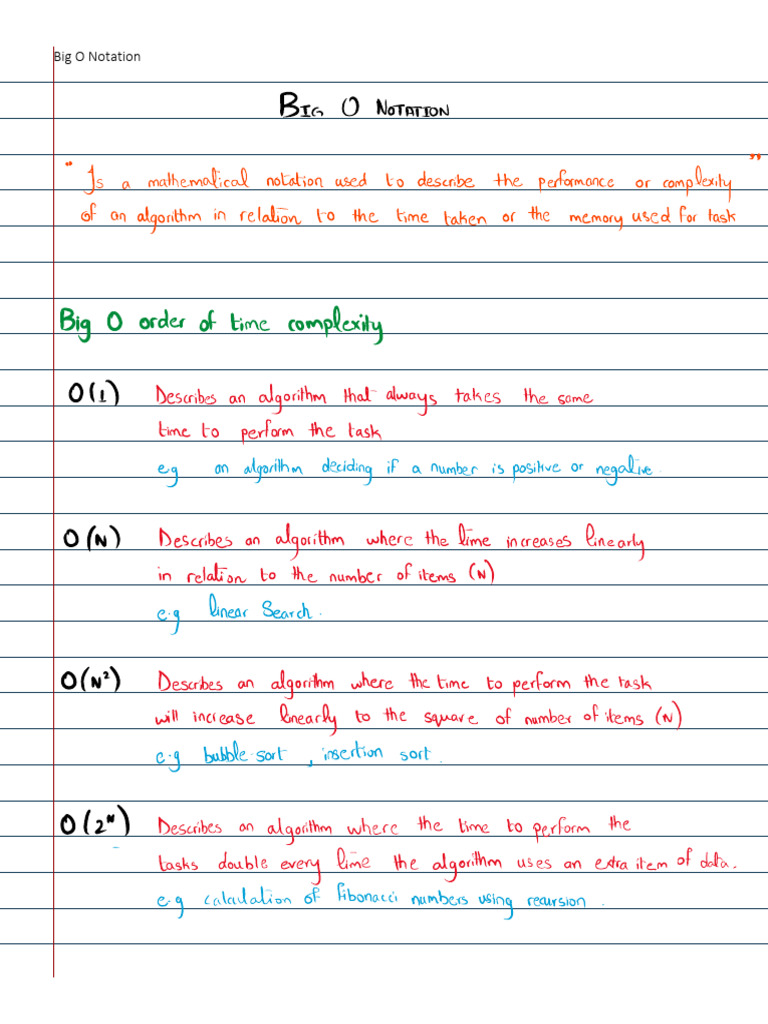 Big O Notation
BIG O NOTATION
" Is a mathematical notation used to describe the performance or complexity "
of an algorithm in relation to the time taken or the memory used for task
Big O order of time complexity
O(1) Describes an algorithm that always takes the same
time to perform the task
eg an algorithm deciding if a number is positive or negative.
O(N) Describes an algorithm where the time increases linearly
in relation to the number of items (N)
e.g linear Search.
O(N²) Describes an algorithm where the time to perform the task
will increase linearly to the square of number of items (N)
e.g bubble sort, insertion sort.
O(2ᴺ) Describes an algorithm where the time to perform the
tasks double every time the algorithm uses an extra item of data.
e.g calculation of fibonacci numbers using recursion.